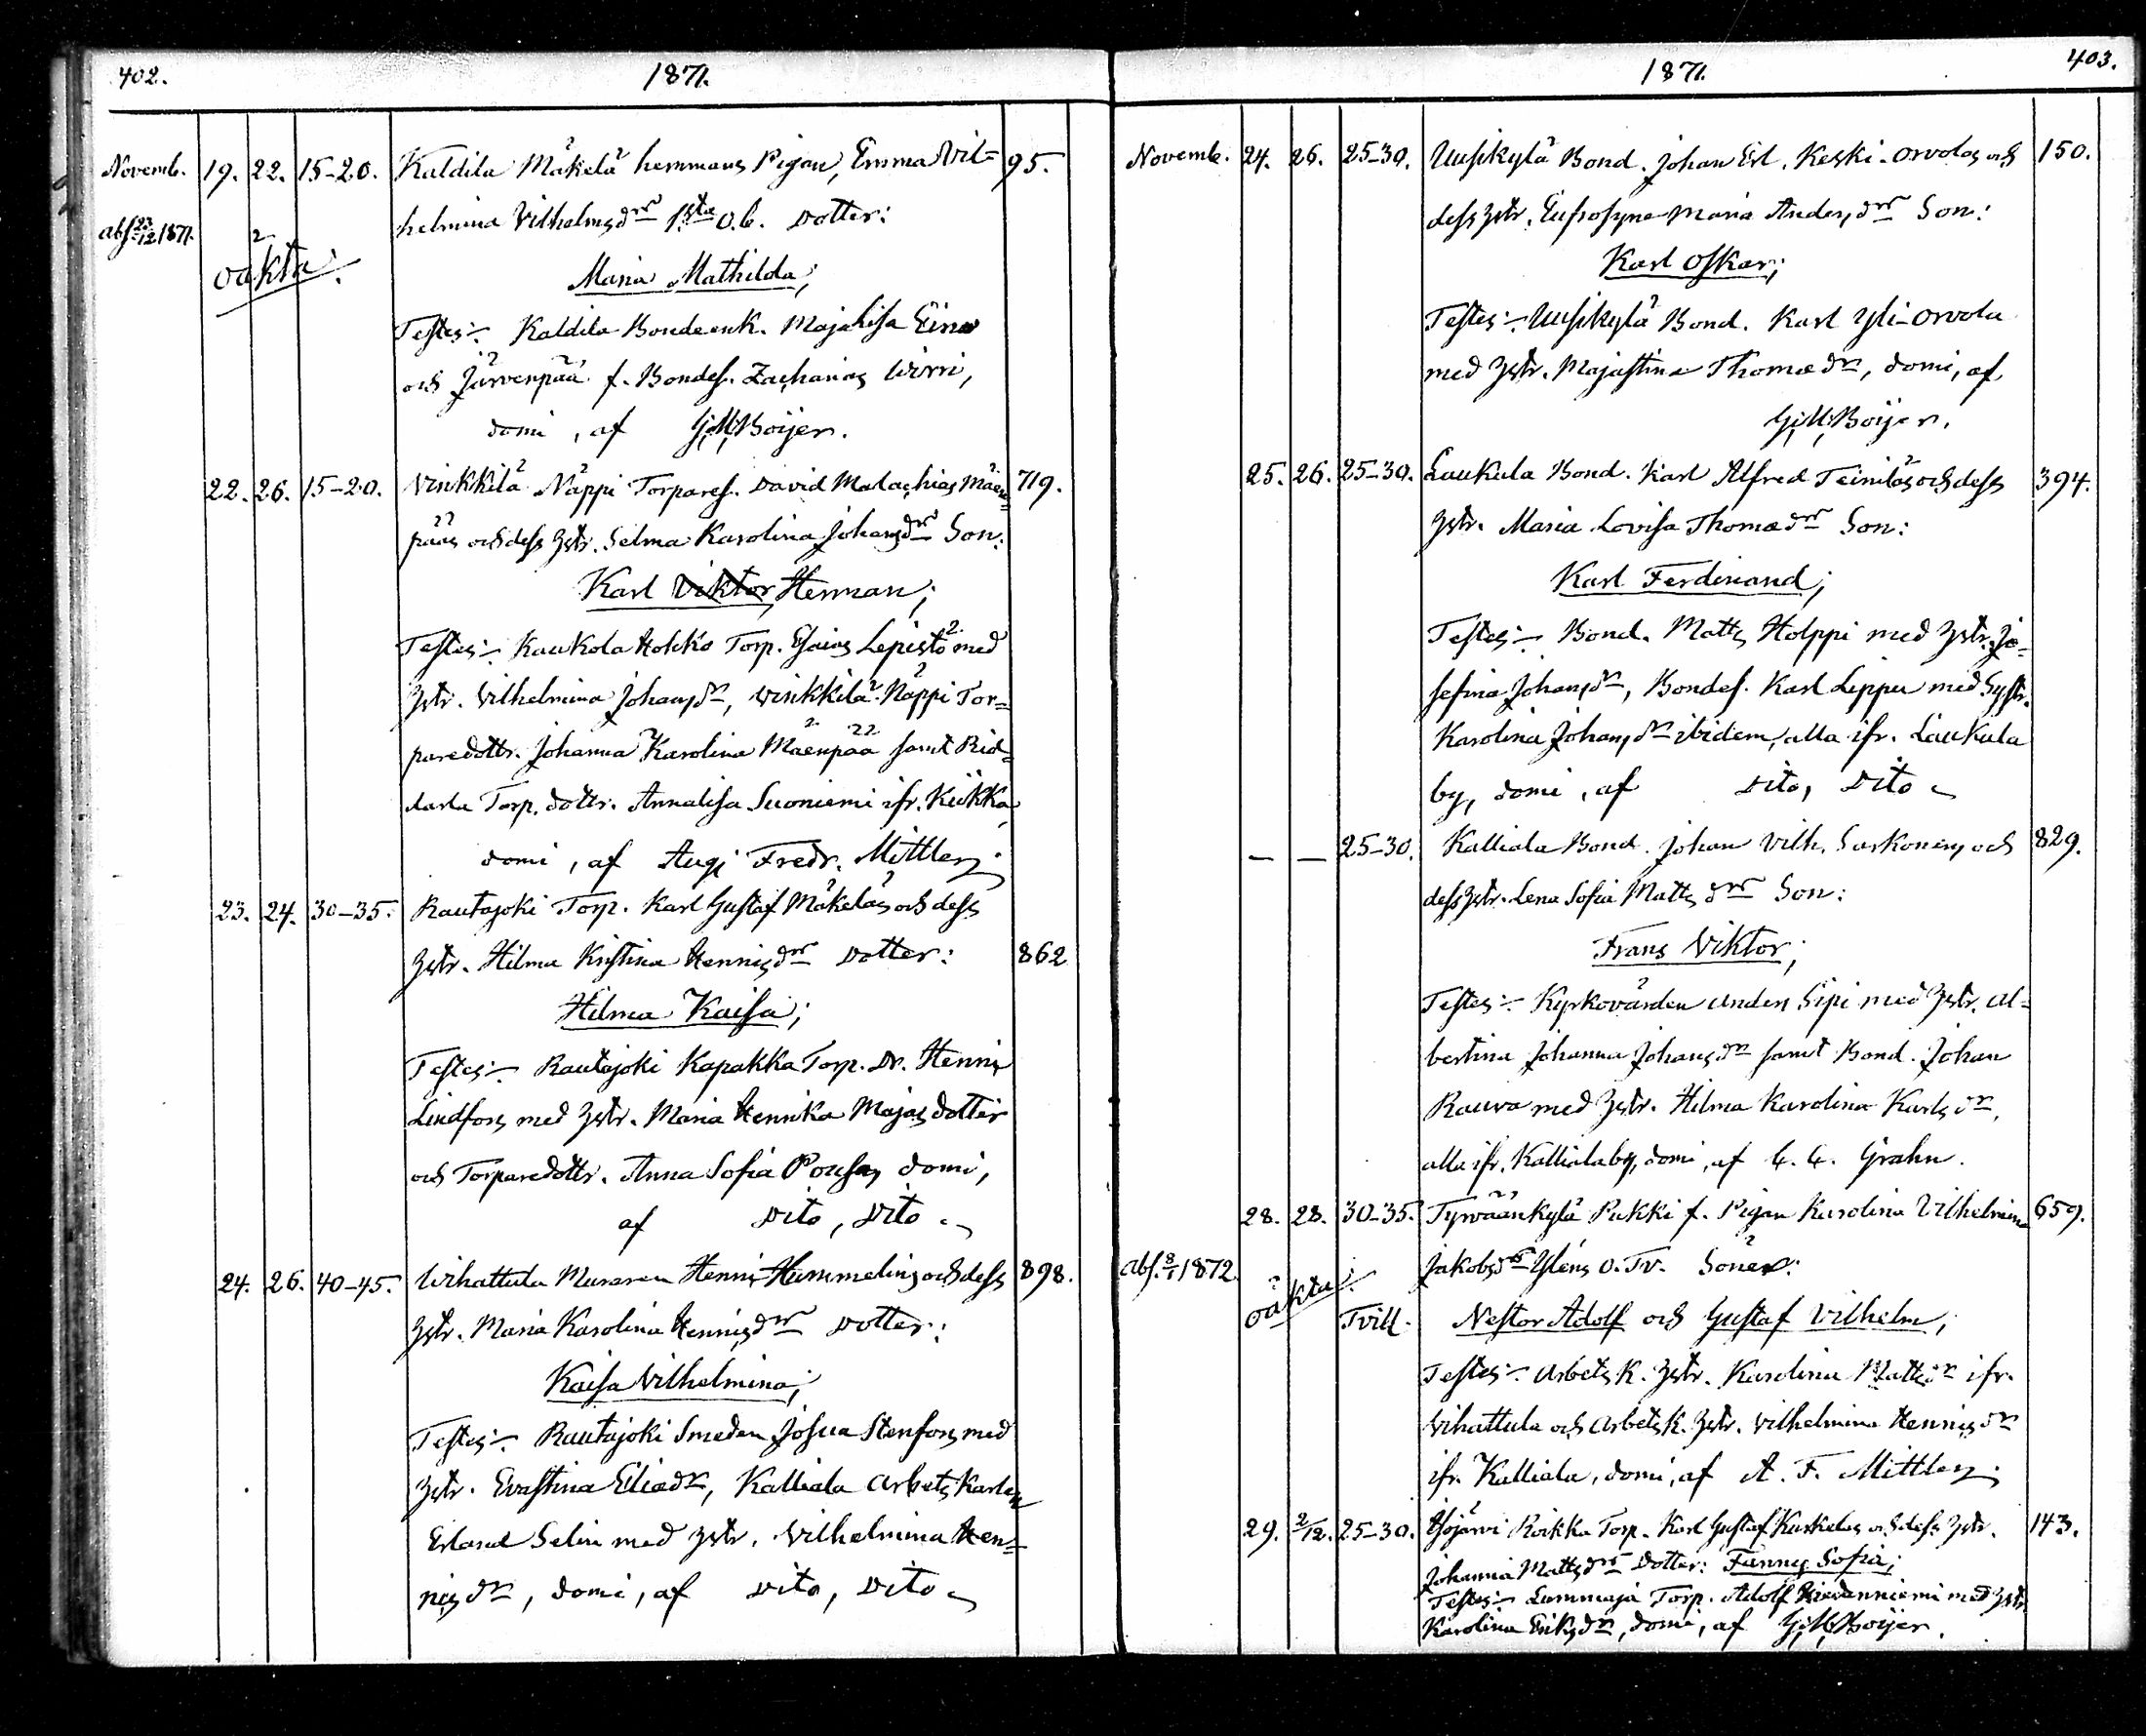 402.
1871.
Novemb. 19. 22. 15-20. Kaldila Mäkelä hemmans Pigan, Emma Vil= 95.
helmina Vilhelmsdr 1sta o.b. Dotter:
abs. 23/12 1871.
oäkta.
Maria Mathilda;
Testes:- Kaldila Bondeenk. Majalisa Eino
och Järvenpää f. Bondes. Zacharias Wirri,
domi, af G.M. Boijer.
22. 26. 15-20. Vinkkilä Näppi Torpares. David Malachias Mäen= 719.
pääs och dess hstr. Selma Karolina Johansdr Son:
Karl Viktor Herman;
Testes:- Kaukola Hokko Torp. Esaias Lepistö med
hstr. Vilhelmina Johansdr, Vinkkilä Näppi Tor=
paredottr. Johanna Karolina Mäenpää samt Rid=
darla Torp. dottr. Annalisa Suoniemi ifr. Kiikka,
domi, af Aug; Fredr. Mittler;
23. 24. 30-35. Rautajoki Torp. Karl Gustaf Mäkeläs och dess
hstr. Hilma Kristina Henrisdr Dotter: 862
Hilma Kaisa;
Testes:- Rautajoki Kapakka Torp. Dr. Henrix
Lindfors med hstr. Maria Henrika Majasdotter
och Torparedottr. Anna Sofia domi,
af Dito, Dito
24. 26. 40-45. Wihattula Muraren Henrix Hummelins och dess 898.
hstr. Maria Karolina Henrisdr Dotter:
Kaisa Vilhelmina;
Testes:- Rautajoki Smeden Josua Stenfors med
hstr. Evastina Eliædr, Kalliala Arbetskarlen
Erland Selin med hstr. Vilhelmina Hen=
risdr, domi, af Dito, Dito
403.
1871.
Novemb. 24. 26. 25-30. Uusikylä Bond. Johan Erl. Keski-Orvolas och 150.
dess hstr. Eufrosyne Maria Andersdr Son:
Karl Oskar;
Testes:- Uusikylä Bond. Karl Yli-Orvola
med hstr. Majastina Thomædr, domi, af
G.M. Boijer.
25. 26. 25-30. Laukula Bond. Karl Alfred Teiniläs och dess 394.
hstr. Maria Lovisa Thomædr Son:
Karl Ferdinand;
Testes:- Bond. Matts Holppi med hstr. Jo=
sefina Johansdr, Bondes. Karl Lippu med Systr.
Karolina Johansdr ibidem, alla ifr. Laukula
by, domi, af Dito, Dito
— — 25-30. Kalliala Bond. Johan Vilh. Sarkonens och 829.
dess hstr. Lena Sofia Mattsdr Son:
Frans Viktor;
Testes:- Kyrkovärden Anders Sipi med hstr. Al=
bertina Johanna Johansdr samt Bond. Johan
Rauva med hstr. Hilma Karolina Karlsdr,
alla ifr. Kalliala by, domi, af C. C. Grahn.
28. 28. 30-35. Tyrväänkylä Pukki f. Pigan Karolina Vilhelmina 659.
abs. 8/1 1872. Jakobsdr Yléns o. Tv. Söner:
oäkta.
Tvill. Nestor Adolf och Gustaf Vilhelm;
Testes:- Arbetsk. hstr. Karolina Mattsdr ifr.
Vihattula och Arbetsk. hstr. Vilhelmina Henrisdr
ifr. Kalliala, domi, af A. F. Mittler;
29. 2/12. 25-30. Isojärvi Roikka Torp. Karl Gustaf Kuskelas och dess hstr. 143.
Johanna Mattsdr Dotter: Fanny Sofia;
Testes:- Lummaja Torp. Adolf Hiedanniemi med hstr.
Karolina Eriksdr, domi, af G.M. Boijer.